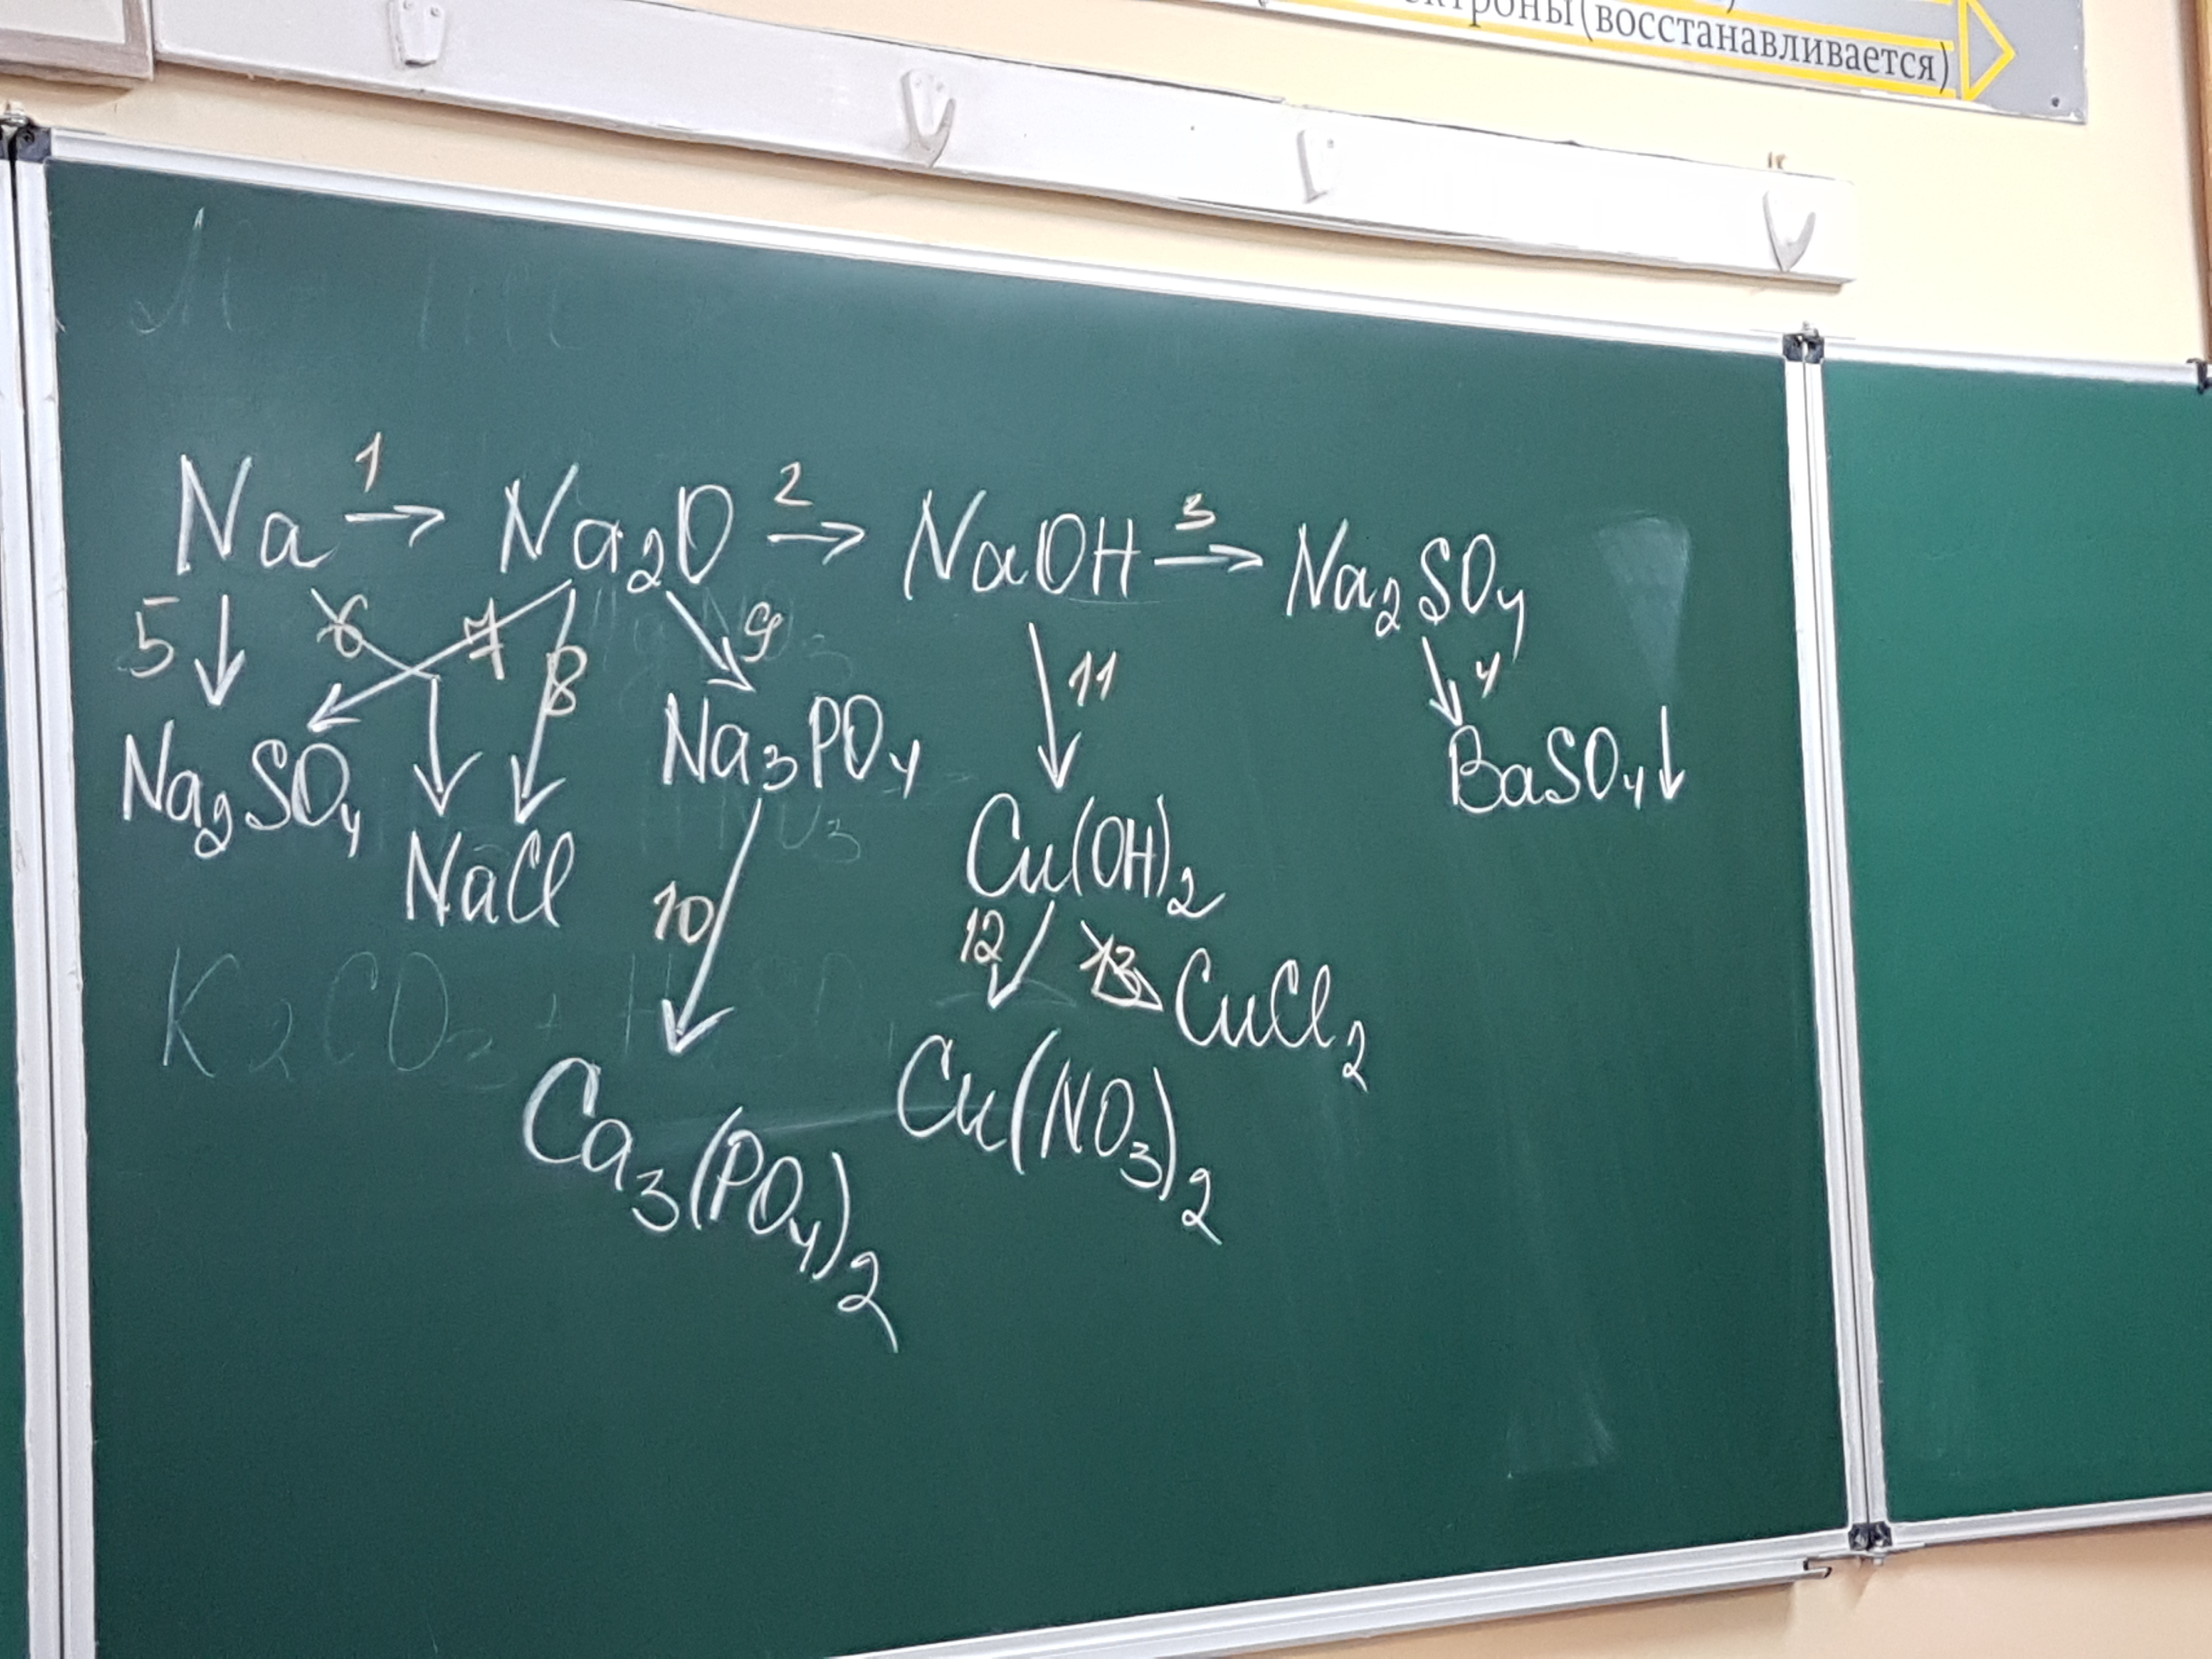 (восстанавливается)
Na 1→ Na₂O 2→ NaOH 3→ Na₂SO₄
5↓ 6 7 8 9 11 4
Na₂SO₄ NaCl Na₃PO₄ Cu(OH)₂ BaSO₄↓
10 12 13 CuCl₂
Ca₃(PO₄)₂ Cu(NO₃)₂
K₂CO₃ +